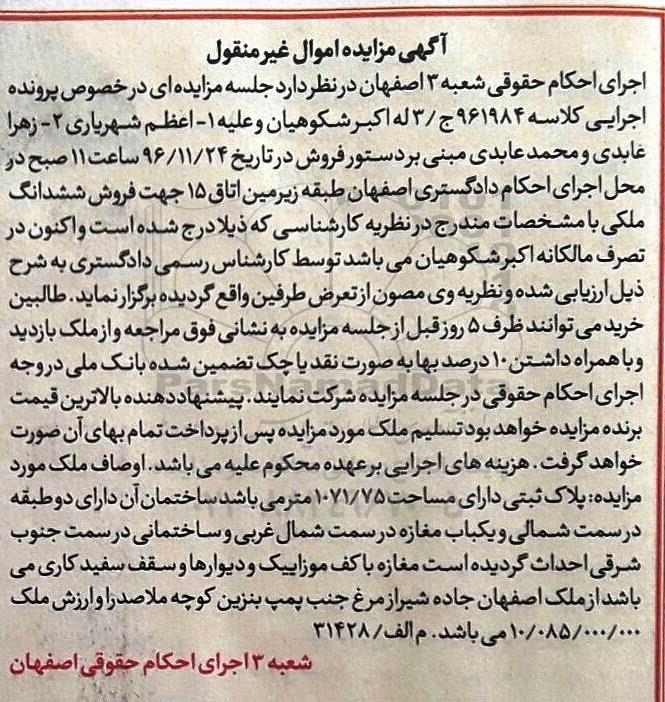 آگهی مزایده اموال غیرمنقول
اجرای احکام حقوقی شعبه ۳ اصفهان در نظر دارد جلسه مزایده ای در خصوص پرونده
اجرایی کلاسه ۹۶۱۹۸۴ج/۳ له اکبر شکوهیان و علیه ۱- اعظم شهریاری ۲- زهرا
عابدی و محمد عابدی مبنی بر دستور فروش در تاریخ ۹۶/۱۱/۲۴ ساعت ۱۱ صبح در
محل اجرای احکام دادگستری اصفهان طبقه زیرمین اتاق ۱۵ جهت فروش ششدانگ
ملکی با مشخصات مندرج در نظریه کارشناسی که ذیلا درج شده است و اکنون در
تصرف مالکانه اکبر شکوهیان می باشد توسط کارشناس رسمی دادگستری به شرح
ذیل ارزیابی شده و نظریه وی مصون از تعرض طرفین واقع گردیده برگزار نماید. طالبین
خرید می توانند ظرف ۵ روز قبل از جلسه مزایده به نشانی فوق مراجعه و از ملک بازدید
و با همراه داشتن ۱۰ درصد بها به صورت نقد یا چک تضمین شده بانک ملی در وجه
اجرای احکام حقوقی در جلسه مزایده شرکت نمایند. پیشنهاد دهنده بالاترین قیمت
برنده مزایده خواهد بود تسلیم ملک مورد مزایده پس از پرداخت تمام بهای آن صورت
خواهد گرفت. هزینه های اجرایی بر عهده محکوم علیه می باشد. اوصاف ملک مورد
مزایده: پلاک ثبتی دارای مساحت ۱۰۷۱/۷۵ متر می باشد ساختمان آن دارای دو طبقه
در سمت شمالی و یکباب مغازه در سمت شمال غربی و ساختمانی در سمت جنوب
شرقی احداث گردیده است مغازه با کف موزاییک و دیوارها و سقف سفید کاری می
باشد از ملک اصفهان جاده شیراز مرغ جنب پمپ بنزین کوچه ملاصدرا و ارزش ملک
۱۰/۰۸۵/۰۰۰/۰۰۰ می باشد. م الف/ ۳۱۴۲۸
شعبه ۳ اجرای احکام حقوقی اصفهان
ParsNamadData